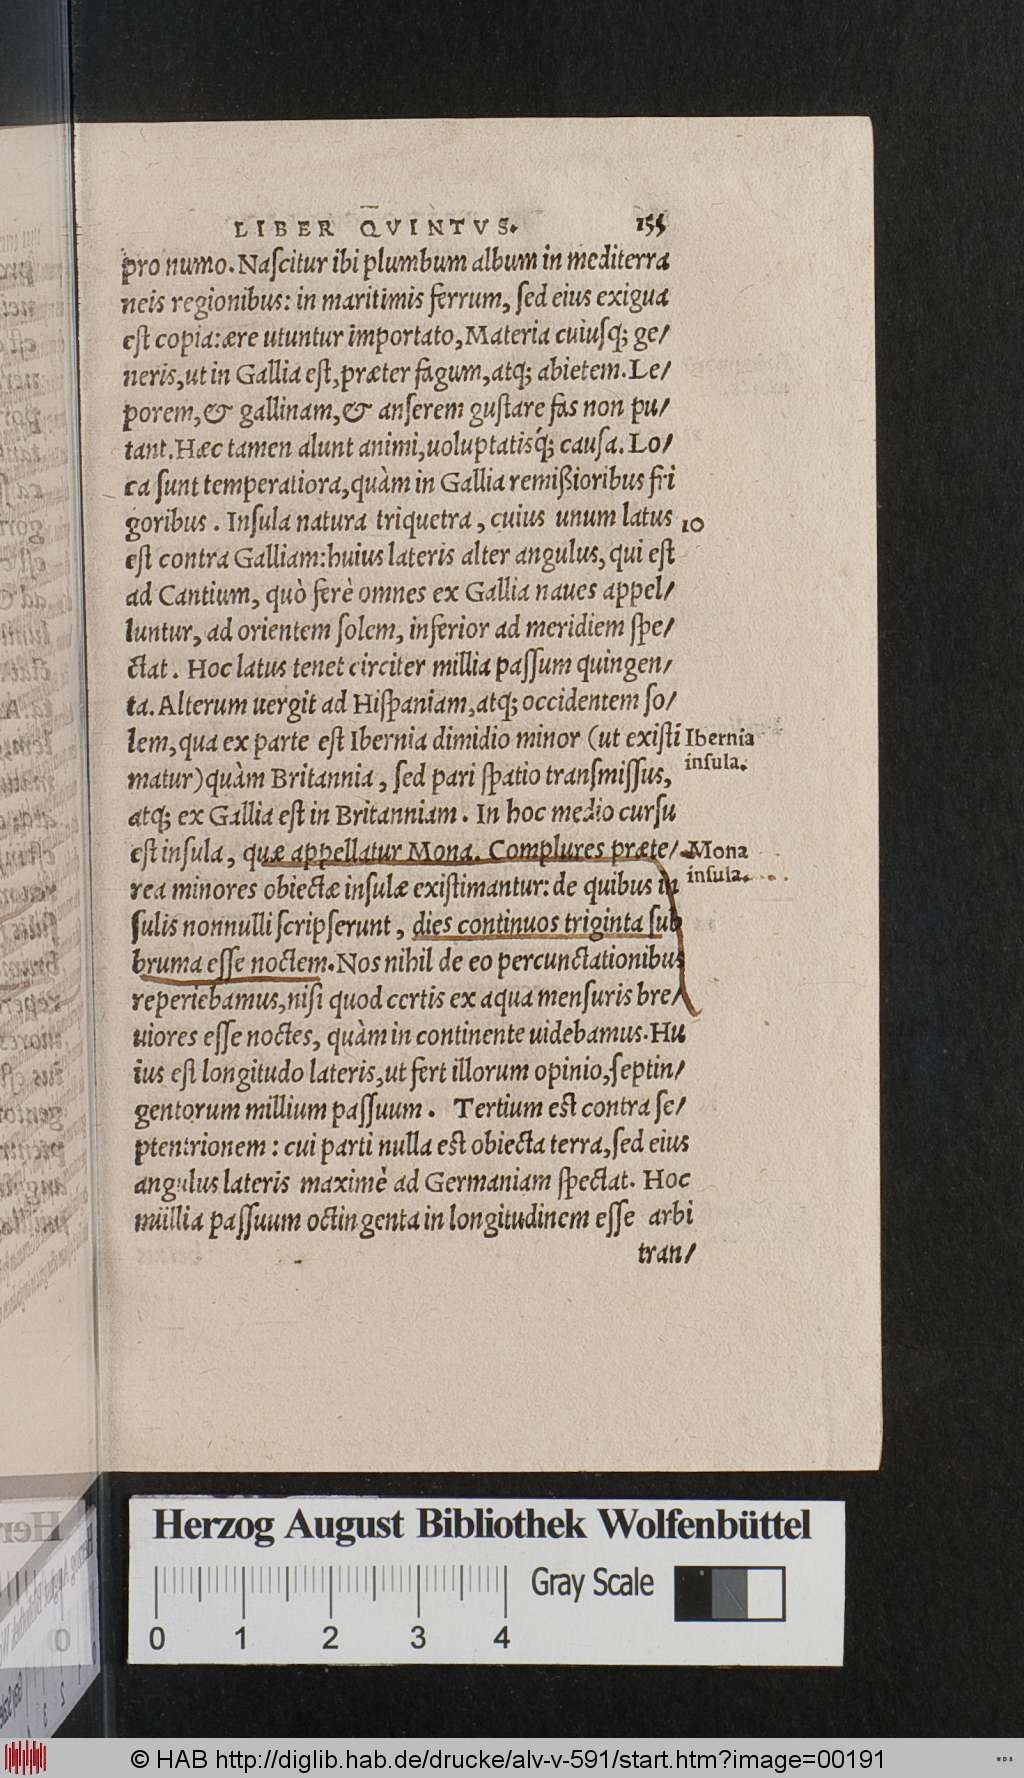 LIBER QVINTVS. 155
pro numo. Naſcitur ibi plumbum album in mediterra
neis regionibus: in maritimis ferrum, ſed eius exigua
eſt copia: ære utuntur importato, Materia cuiuſq; ge/
neris, ut in Gallia eſt, præter fagum, atq; abietem. Le/
porem, & gallinam, & anſerem guſtare fas non pu/
tant. Hæc tamen alunt animi, uoluptatisq́; cauſa. Lo/
ca ſunt temperatiora, quàm in Gallia remißioribus fri
goribus. Inſula natura triquetra, cuius unum latus 10
eſt contra Galliam: huius lateris alter angulus, qui eſt
ad Cantium, quò ferè omnes ex Gallia naues appel/
luntur, ad orientem ſolem, inferior ad meridiem ſpe/
ctat. Hoc latus tenet circiter millia paſſum quingen/
ta. Alterum uergit ad Hiſpaniam, atq; occidentem ſo/
lem, qua ex parte eſt Ibernia dimidio minor (ut exiſti Ibernia
matur) quàm Britannia, ſed pari ſpatio tranſmiſſus, inſula.
atq; ex Gallia eſt in Britanniam. In hoc medio curſu
eſt inſula, quæ appellatur Mona. Complures præte/ Mona
rea minores obiectæ inſulæ exiſtimantur: de quibus in inſula.
ſulis nonnulli ſcripſerunt, dies continuos triginta ſub
bruma eſſe noctem. Nos nihil de eo percunctationibus
reperiebamus, niſi quod certis ex aqua menſuris bre/
uiores eſſe noctes, quàm in continente uidebamus. Hu
ius eſt longitudo lateris, ut fert illorum opinio, ſeptin/
gentorum millium paſſuum. Tertium est contra ſe/
ptentrionem: cui parti nulla est obiecta terra, ſed eius
angulus lateris maximè ad Germaniam ſpectat. Hoc
millia paſſuum octingenta in longitudinem eſſe arbi
tran/
Herzog August Bibliothek Wolfenbüttel
Gray Scale
0 1 2 3 4
© HAB http://diglib.hab.de/drucke/alv-v-591/start.htm?image=00191